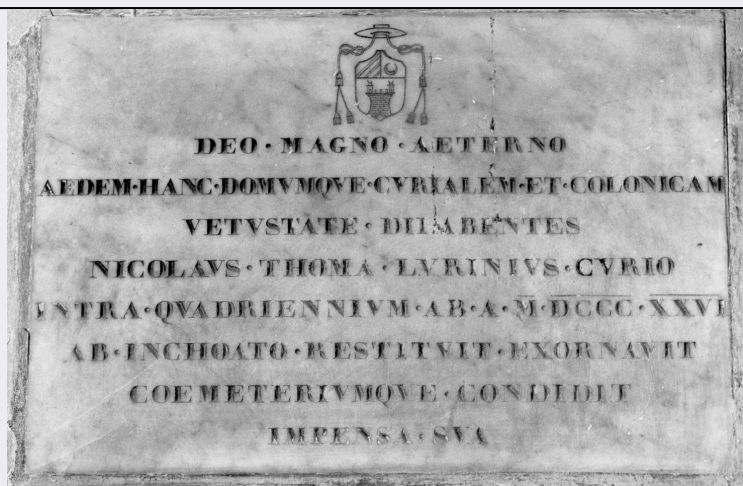 DEO · MAGNO · AETERNO
AEDEM · HANC · DOMVMQVE · CVRIALEM · ET · COLONICAM
VETVSTATE · DILABENTES
NICOLAVS · THOMA · LVRINIVS · CVRIO
INTRA · QVADRIENNIVM · AB · A · M · DCCC · XXVI
AB · INCHOATO · RESTITVIT · EXORNAVIT
COEMETERIVMQVE · CONDIDIT
IMPENSA · SVA